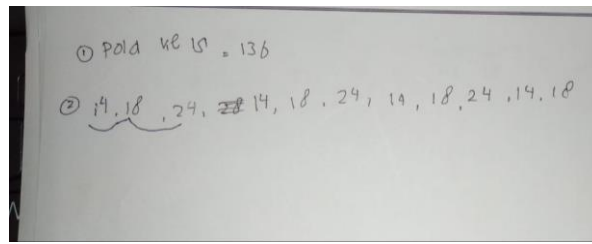 ① Pola ke 15 = 136
② 14, 18, 24, 14, 18, 24, 14, 18, 24, 14, 18